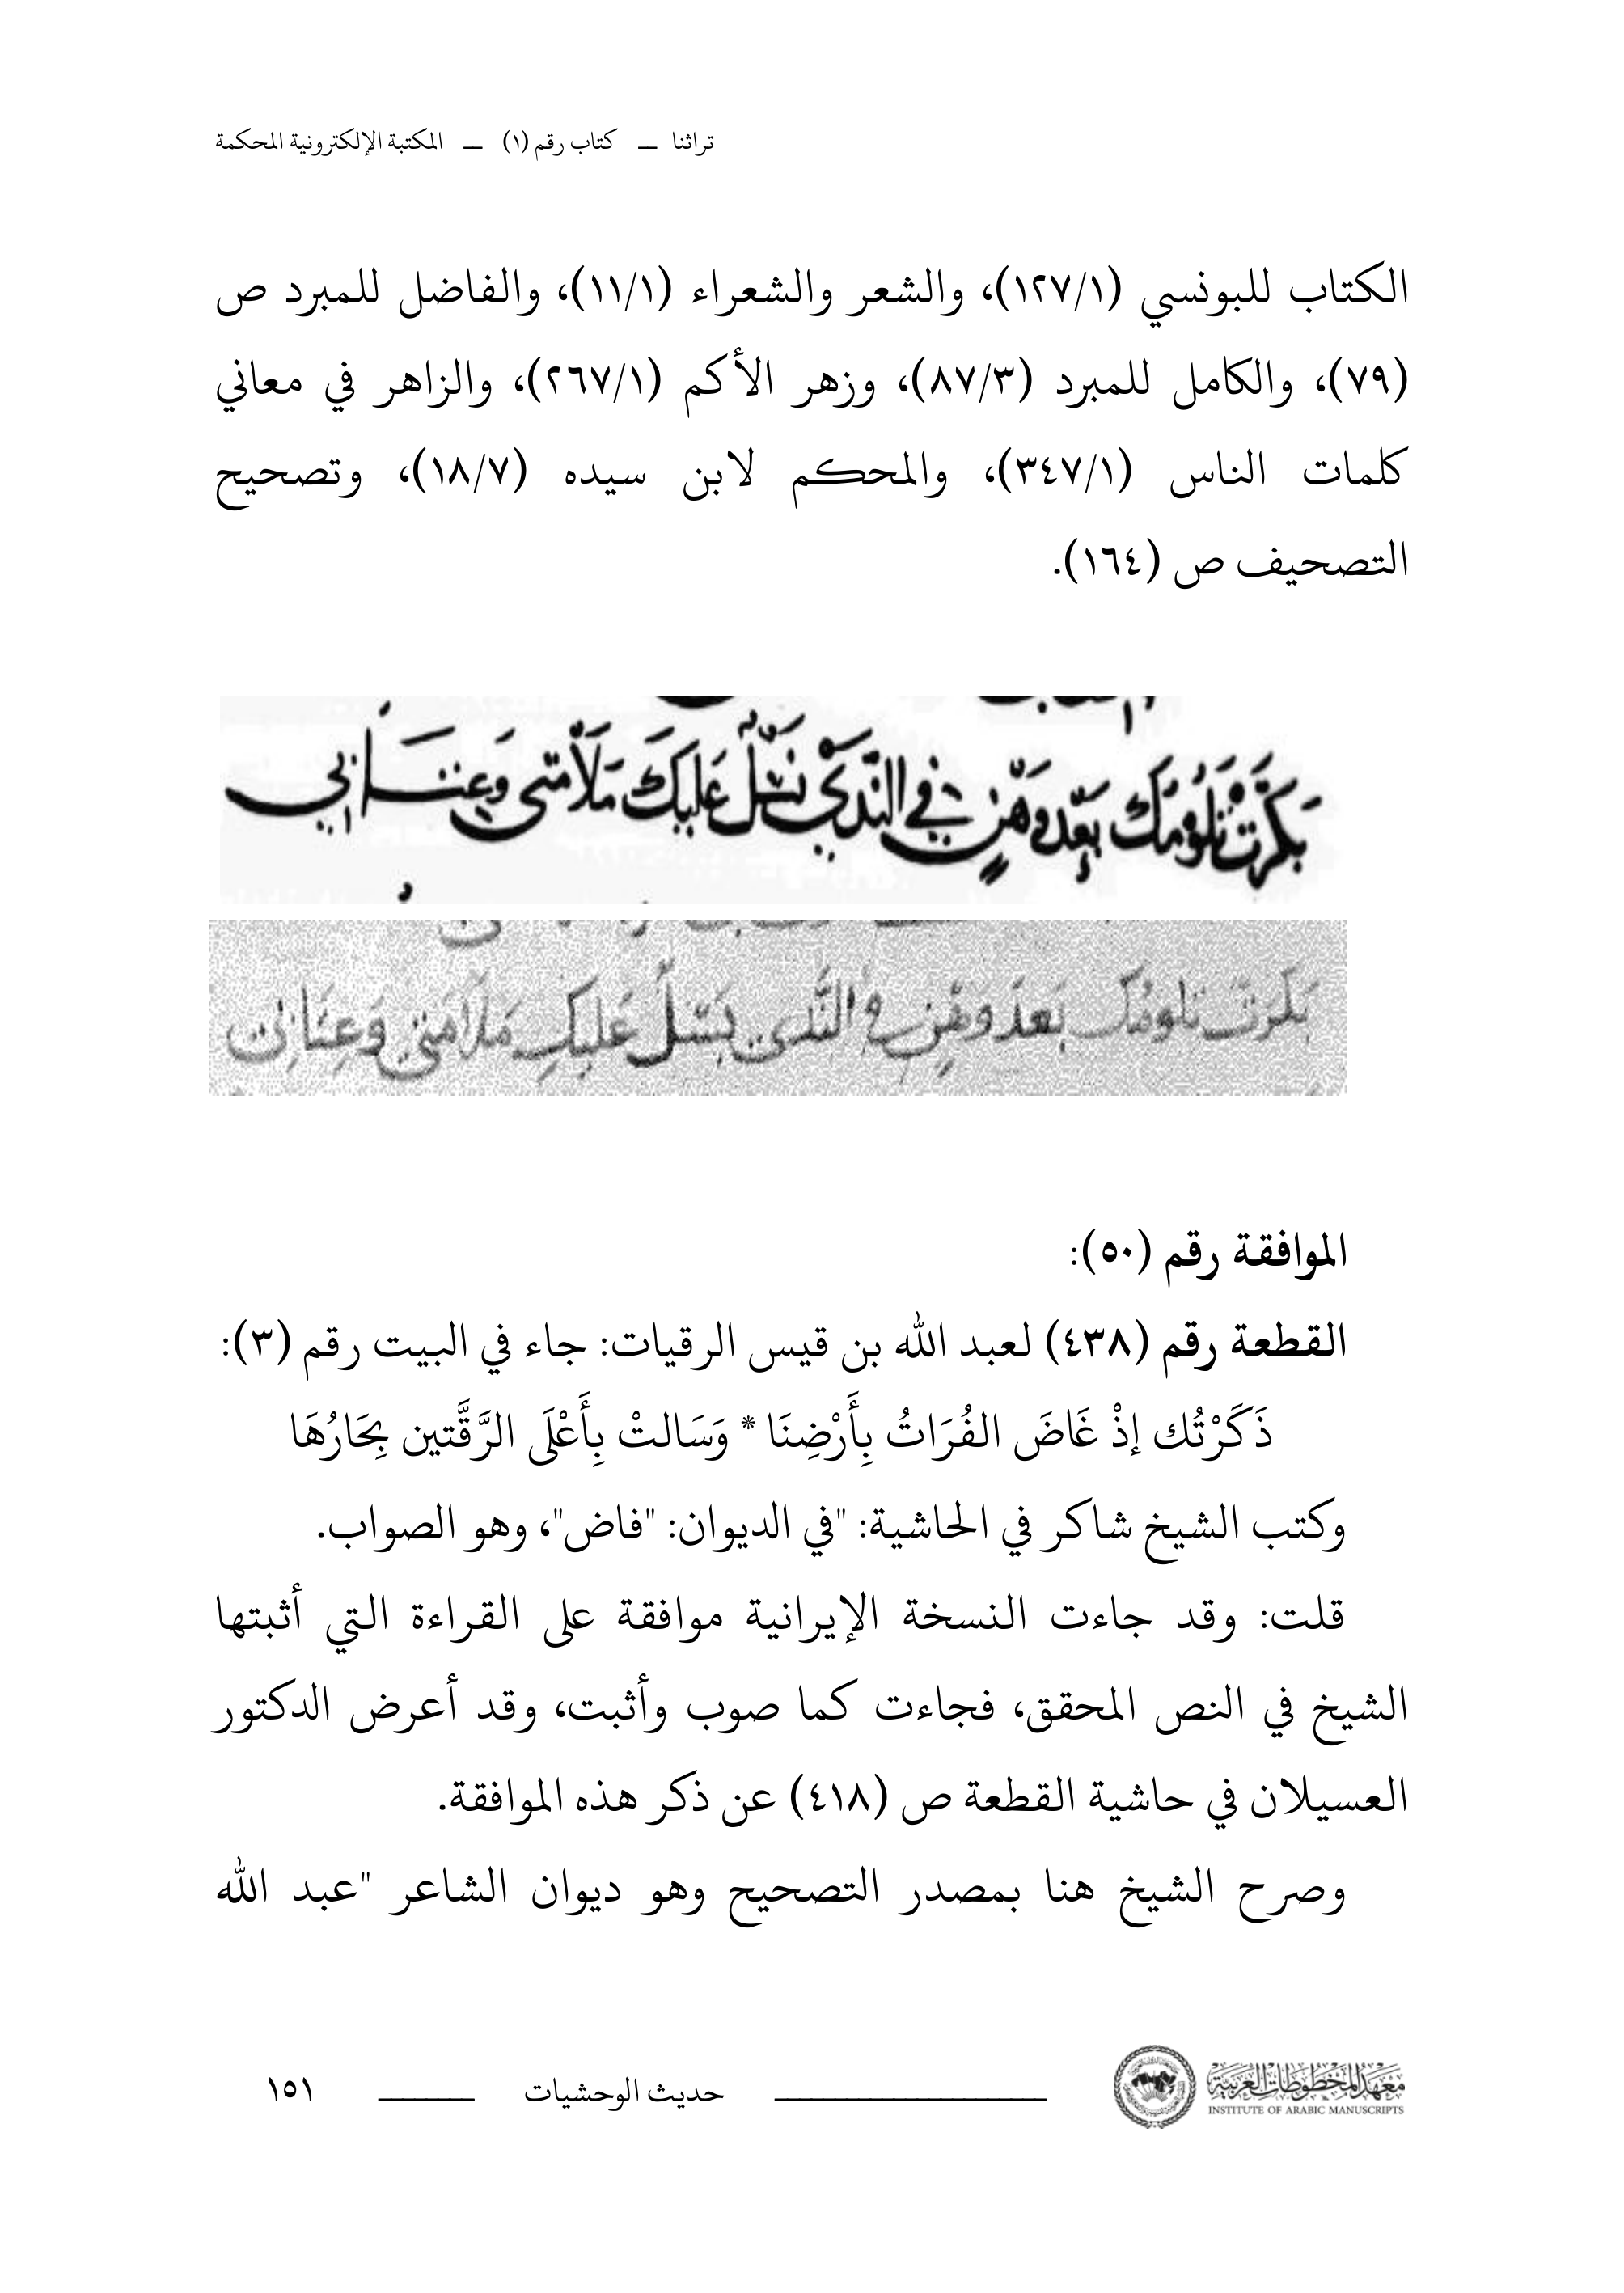 تراثنا — كتاب رقم (١) — المكتبة الإلكترونية المحكمة
الكتاب للبونسي (١٢٧/١)، والشعر والشعراء (١١/١)، والفاضل للمبرد ص
(٧٩)، والكامل للمبرد (٨٧/٣)، وزهر الأكم (٢٦٧/١)، والزاهر في معاني
كلمات الناس (٣٤٧/١)، والمحكم لابن سيده (١٨/٧)، وتصحيح
التصحيف ص (١٦٤).
بَكَرَتْ تَلُومُكَ بَعْدَ وَهْنٍ فِي النَّدَى بَسْلٌ عَلَيكَ مَلَامَتِي وَعِتَابِي
بَكَرَتْ تَلُومُكَ بَعدَ وَهْنٍ فِي النَّدَى بَسْلٌ عَلَيكِ مَلَامَتِي وَعِتَابِي
الموافقة رقم (٥٠):
القطعة رقم (٤٣٨) لعبد الله بن قيس الرقيات: جاء في البيت رقم (٣):
ذَكَرْتُك إذْ غَاضَ الفُرَاتُ بِأَرْضِنَا * وَسَالتْ بِأَعْلَى الرَّقَّتين بِحَارُهَا
وكتب الشيخ شاكر في الحاشية: "في الديوان: "فاض"، وهو الصواب.
قلت: وقد جاءت النسخة الإيرانية موافقة على القراءة التي أثبتها
الشيخ في النص المحقق، فجاءت كما صوب وأثبت، وقد أعرض الدكتور
العسيلان في حاشية القطعة ص (٤١٨) عن ذكر هذه الموافقة.
وصرح الشيخ هنا بمصدر التصحيح وهو ديوان الشاعر "عبد الله
معهد المخطوطات العربية
INSTITUTE OF ARABIC MANUSCRIPTS
حديث الوحشيات
١٥١